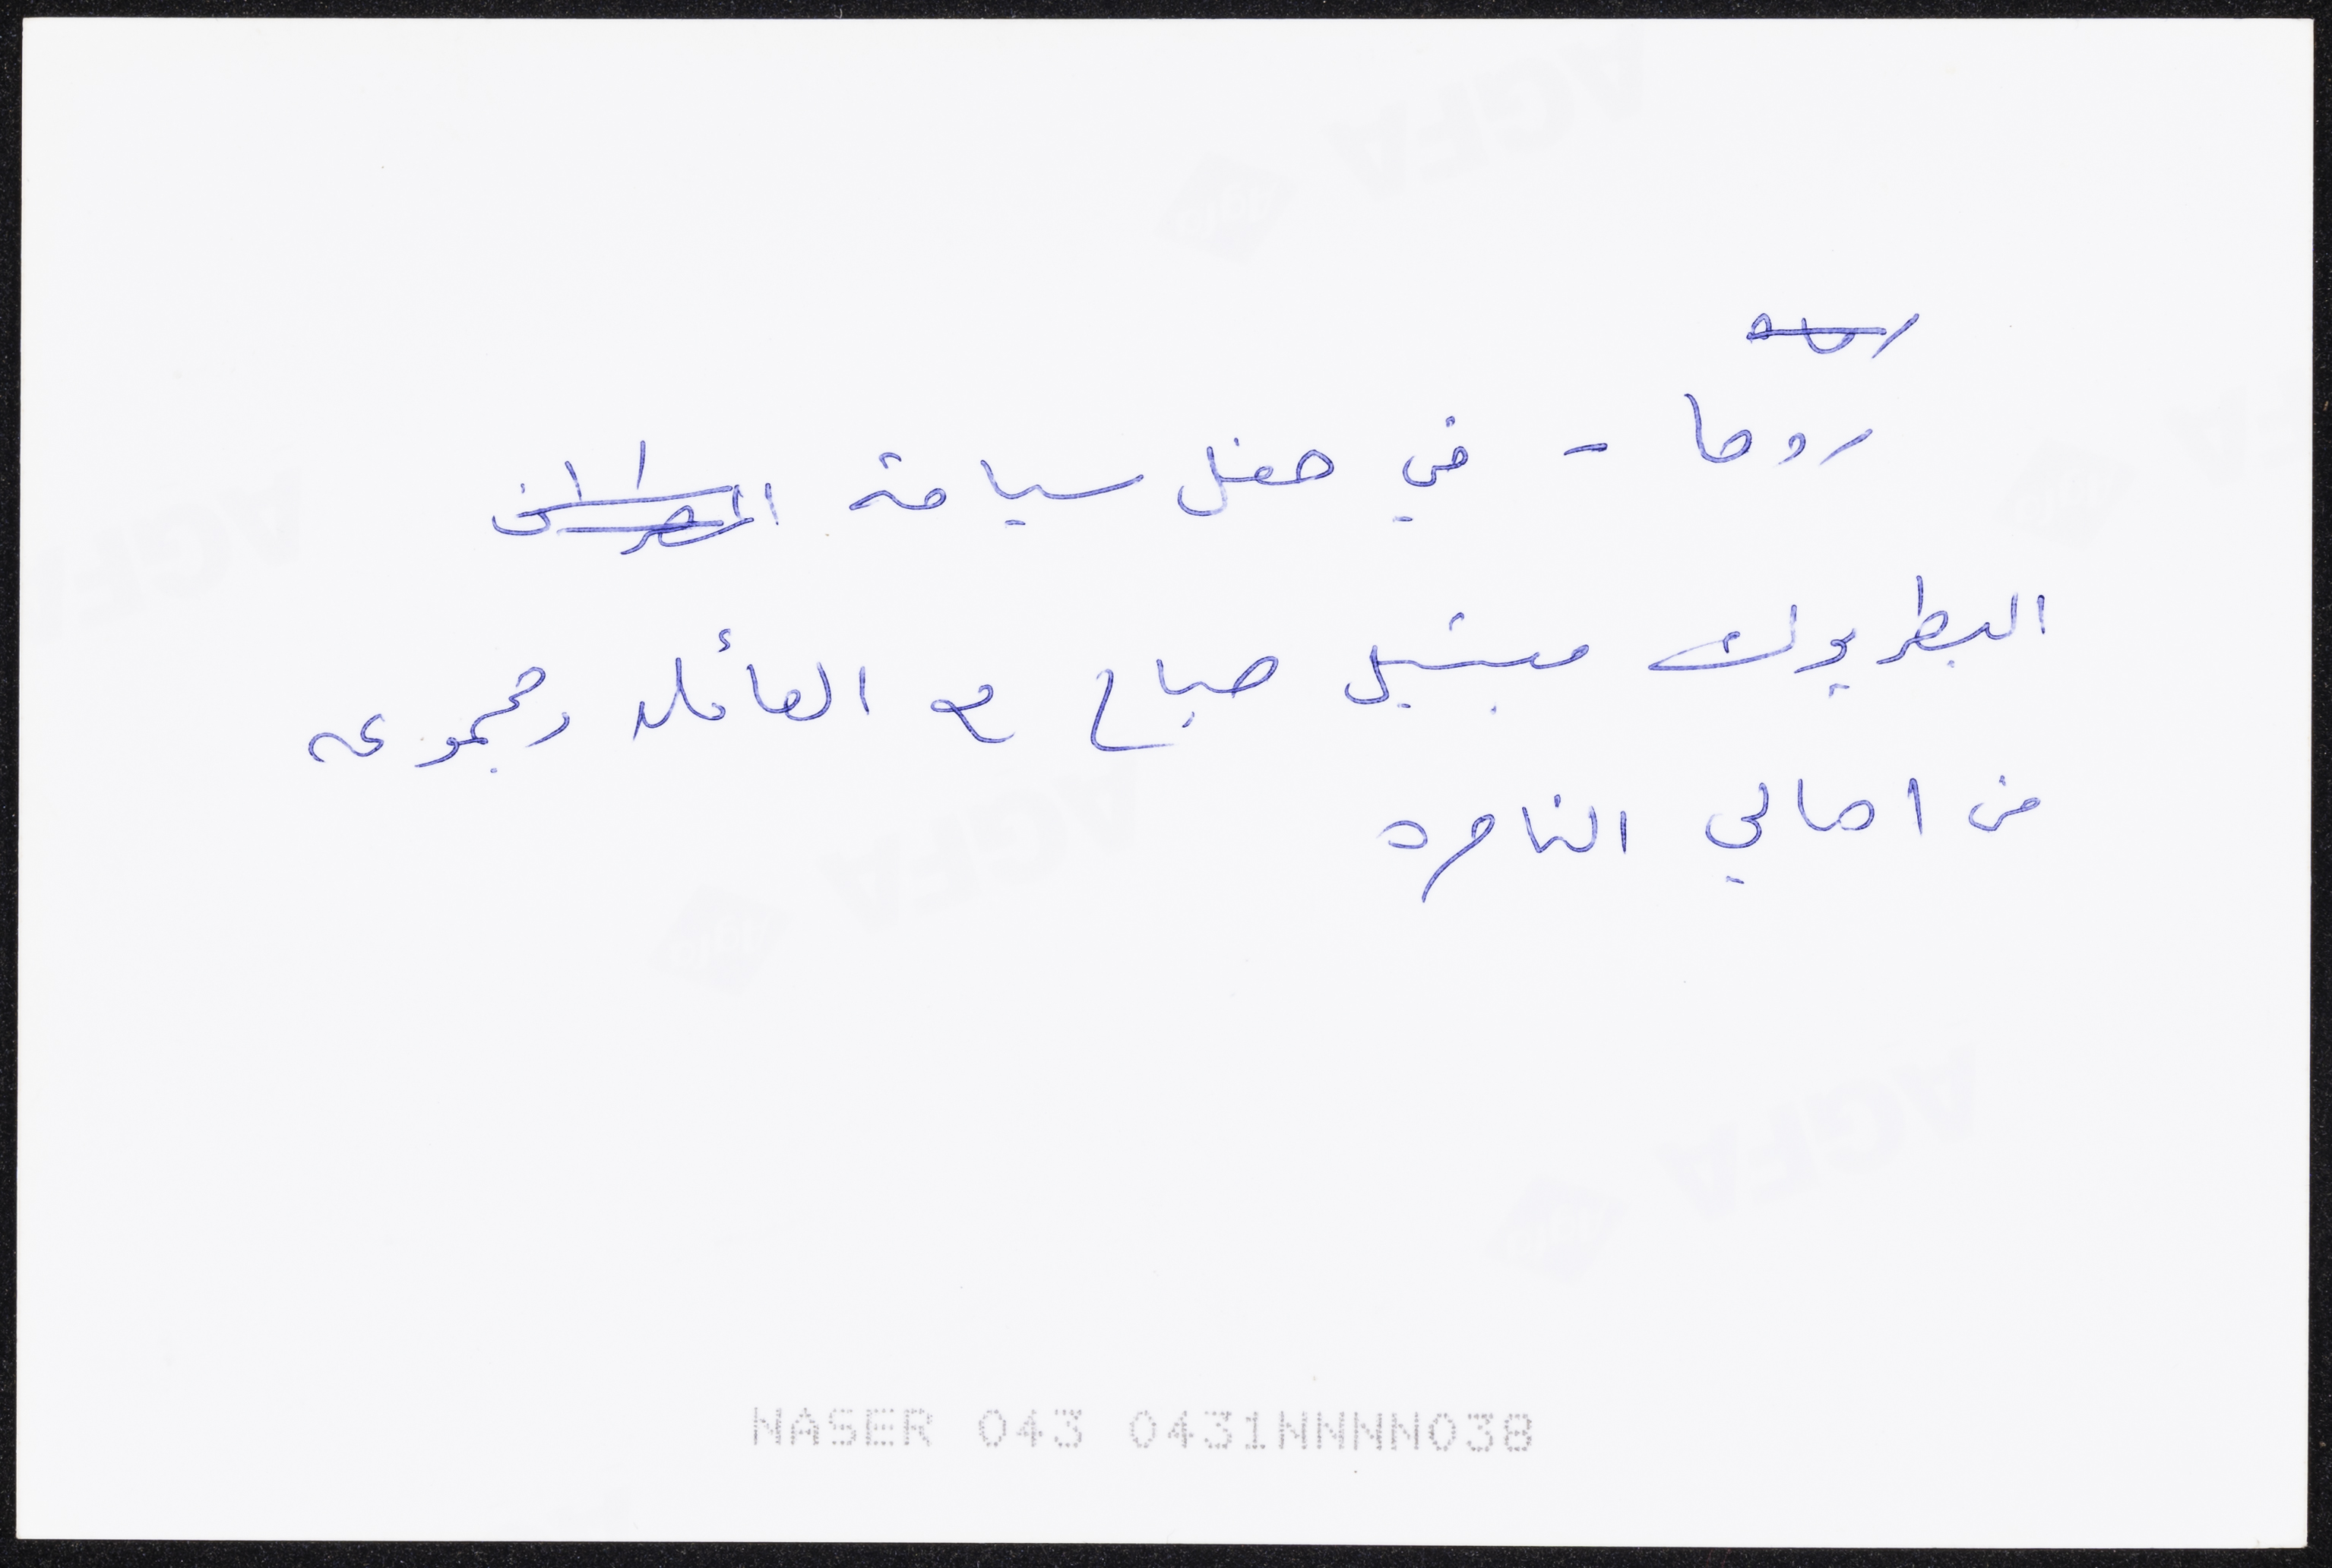 روما - في حفل سيامة المطران
البطريرك ميشيل صباح مع العائلة ومجموعه
من اهالي الناصرة
NASER 043 0431NNNNN038
AGFA